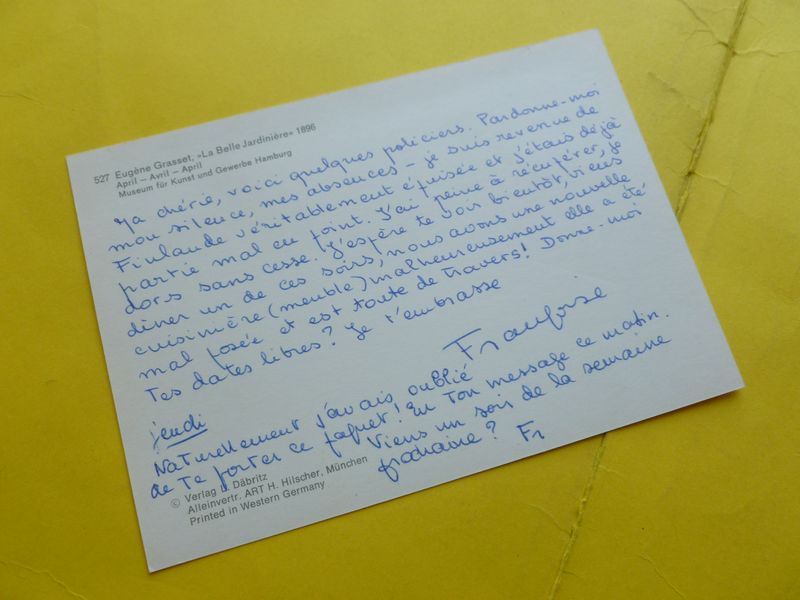 527 Eugène Grasset, »La Belle Jardinière« 1896
April – Avril – April
Museum für Kunst und Gewerbe Hamburg
Ma chérie, voici quelques policiers. Pardonne-moi
mon silence, mes absences – je suis revenue de
Finlande véritablement épuisée et j'étais déjà
partie mal en point. J'ai peine à récupérer, je
dors sans cesse. J'espère te voir bientôt, viens
dîner un de ces soirs, nous avons une nouvelle
cuisinière (meuble) malheureusement elle a été
mal posée et est toute de travers! Donne-moi
tes dates libres? Je t'embrasse
Françoise
jeudi
Naturellement j'avais oublié
de te porter ce paquet! Eu ton message ce matin.
Viens un soir de la semaine
prochaine? Fr
© Verlag D. Däbritz
Alleinvertr. ART H. Hilscher, München
Printed in Western Germany